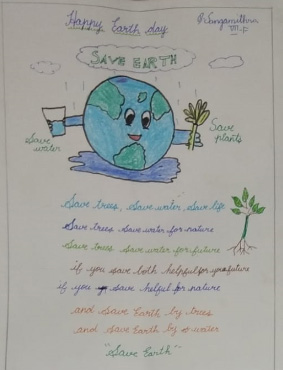 Happy Earth day
P. Sangamithra
VII-F
SAVE EARTH
Save
water
Save
plants
Save trees, Save water, Save life
Save trees save water for nature
Save trees save water for future
if you save both helpful for future
if you save helpful for nature
and save Earth by trees
and save Earth by water
"Save Earth"